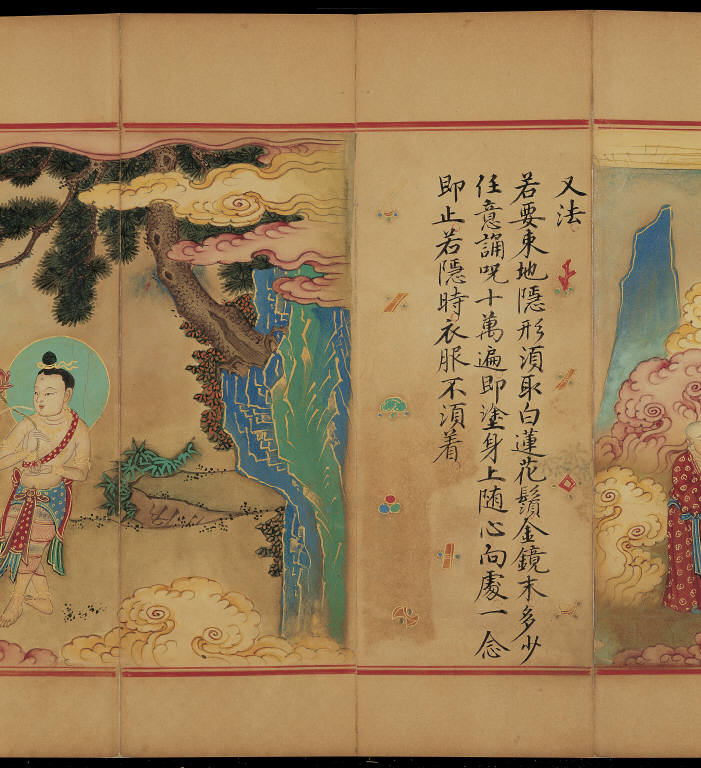 又法
若要東地隱形須取白蓮花鬚金鏡末多少
任意誦呪十萬遍即塗身上随心向處一念
即止若隱時衣服不須着